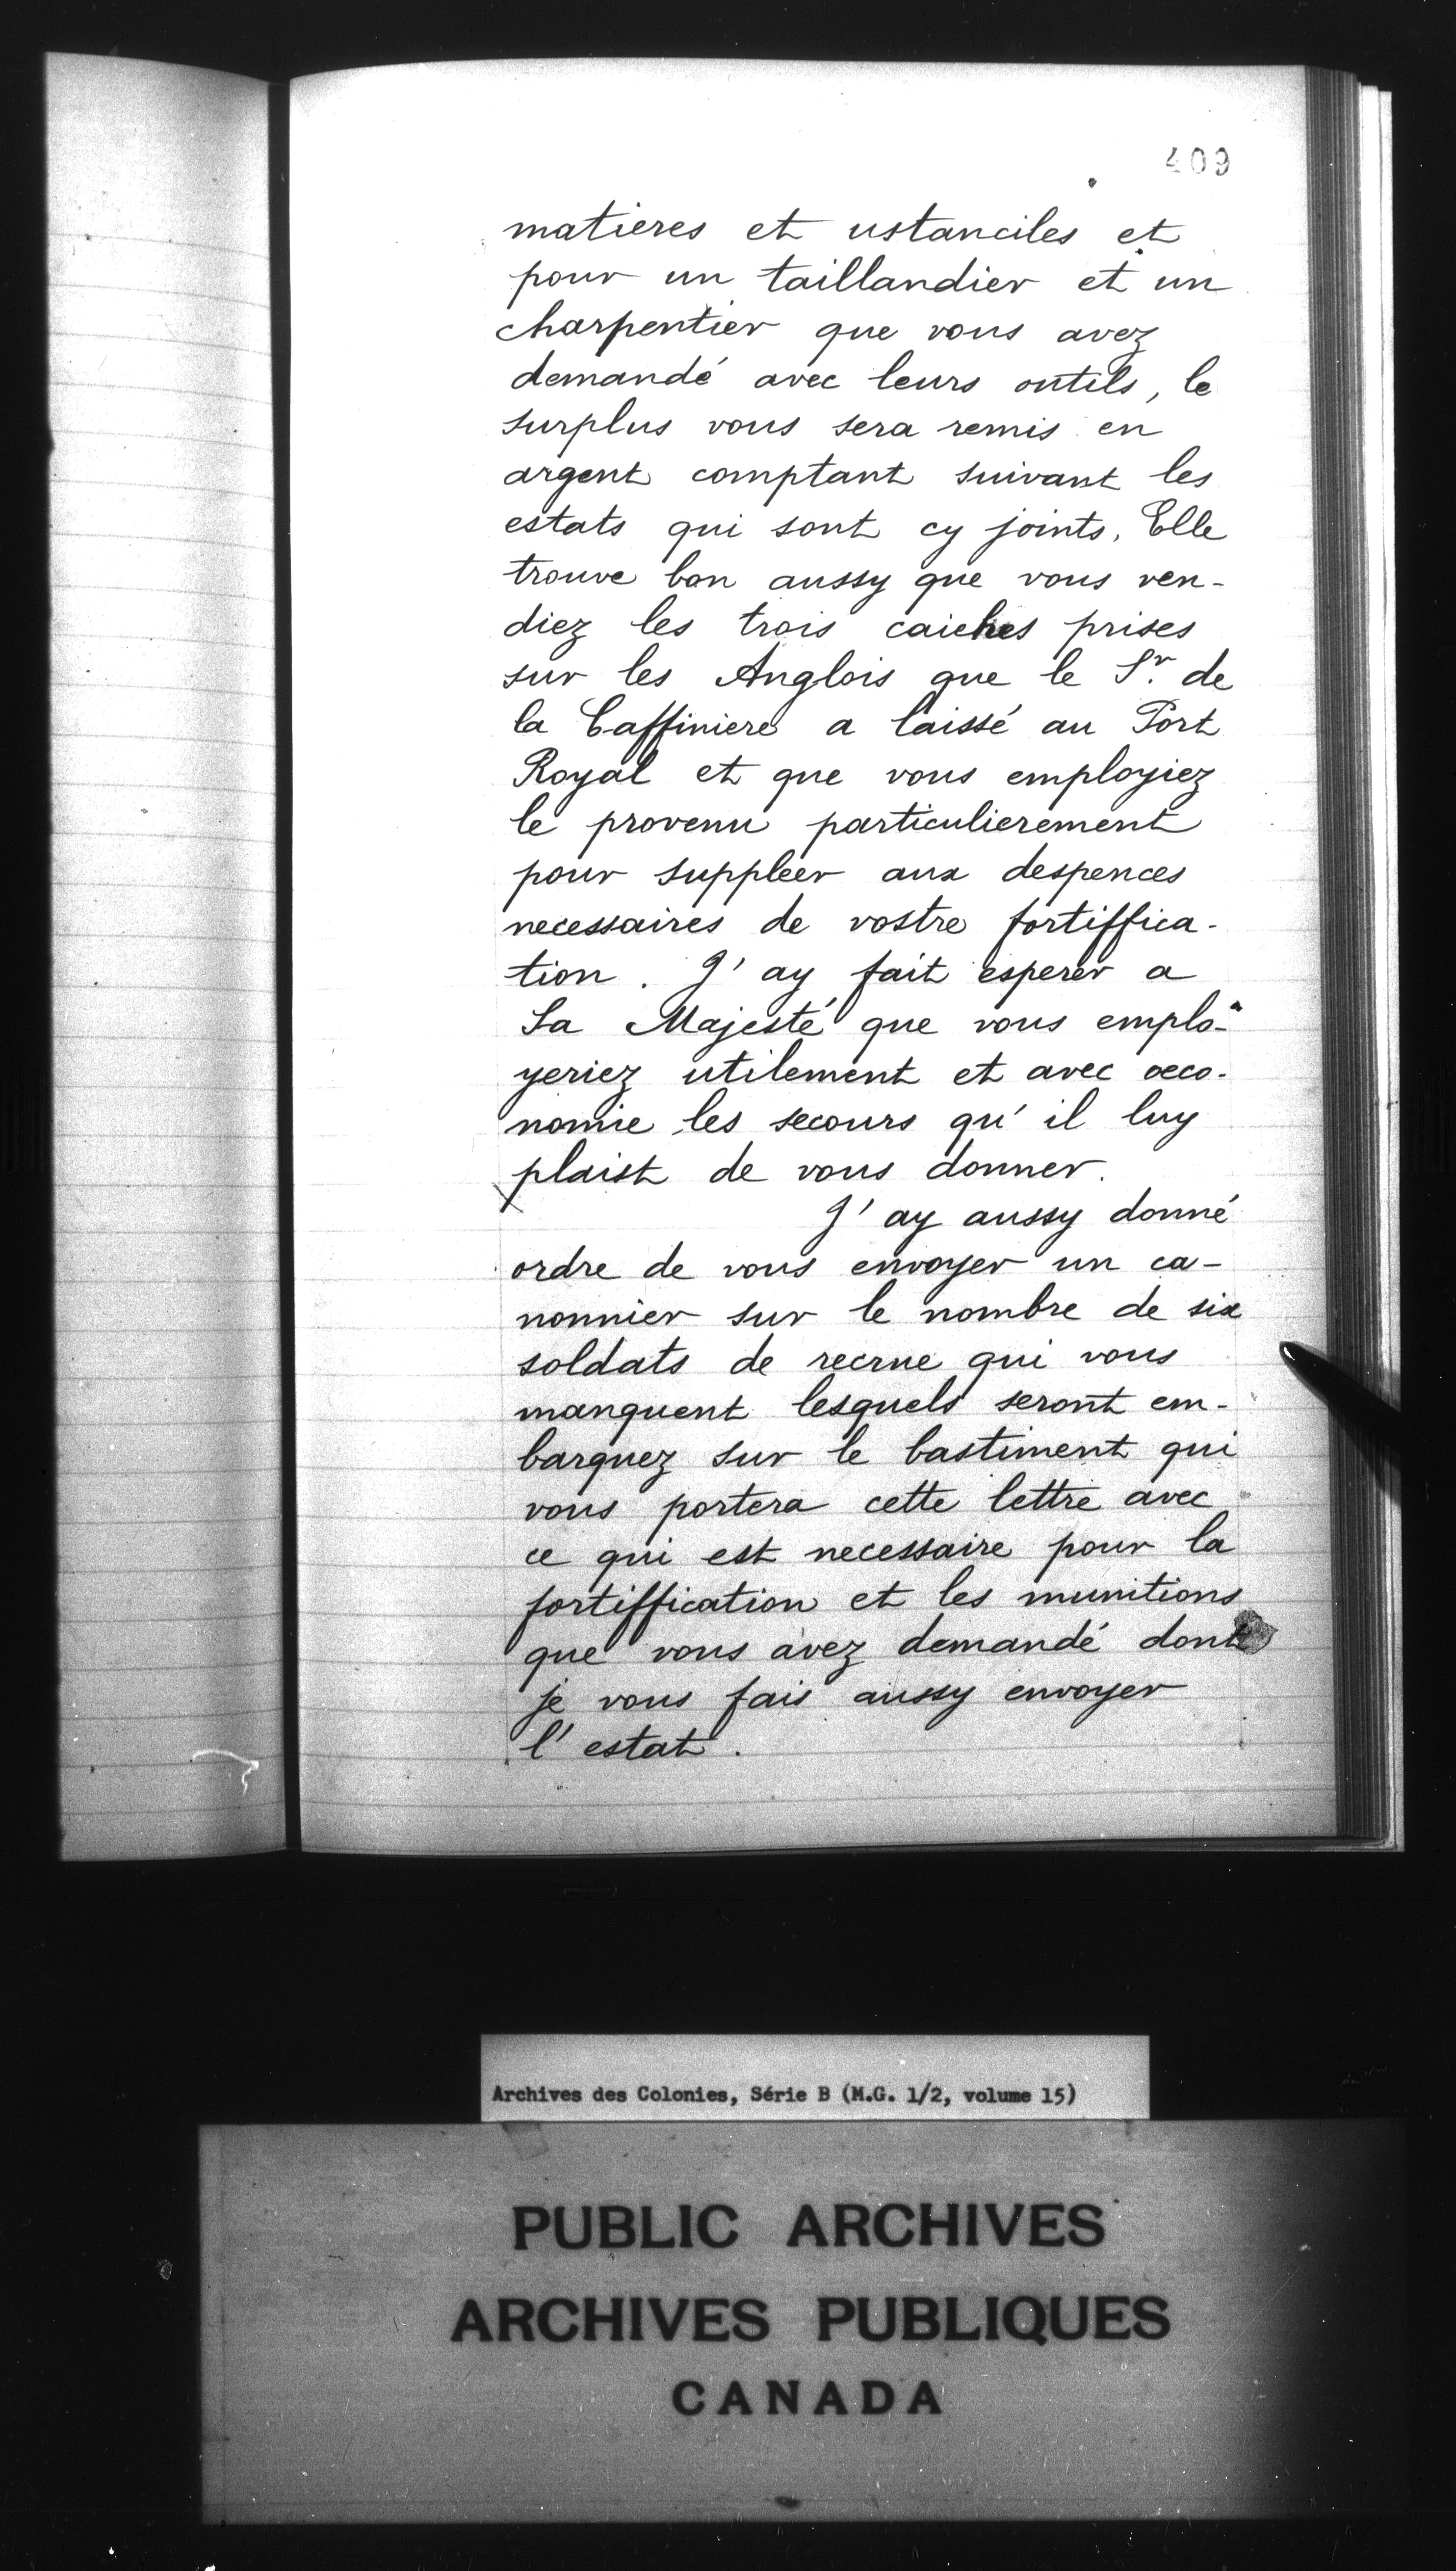 409
matieres et ustanciles et
pour un taillandier et un
charpentier que vous avez
demandé avec leurs outils, le
surplus vous sera remis en
argent comptant suivant les
estats qui sont cy joints, Elle
trouve bon aussy que vous ven-
diez les trois caiches prises
sur les Anglois que le Sr. de
la Caffiniere a laissé au Port
Royal et que vous employiez
le provenu particulierement
pour suppleer aux despences
necessaires de vostre fortiffica-
tion. J'ay fait esperer a
Sa Majesté que vous emplo-
yeriez utilement et avec oeco-
nomie les secours qu'il luy
plaist de vous donner.
J'ay aussy donné
ordre de vous envoyer un ca-
nonnier sur le nombre de six
soldats de recrue qui vous
manquent lesquels seront em-
barquez sur le bastiment qui
vous portera cette lettre avec
ce qui est necessaire pour la
fortiffication et les munitions
que vous avez demandé dont
je vous fais aussy envoyer
l'estat.
Archives des Colonies, Série B (M.G. 1/2, volume 15)
PUBLIC ARCHIVES
ARCHIVES PUBLIQUES
CANADA